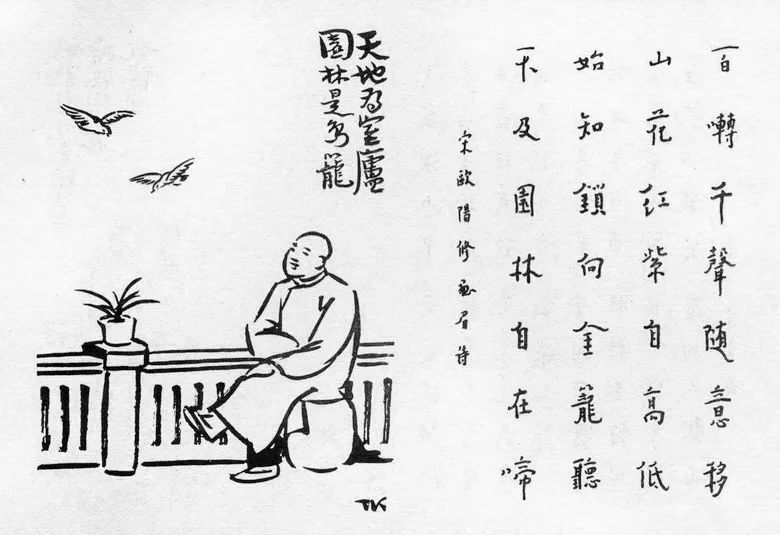 百囀千聲随意移
山花紅紫自高低
始知鎖向金籠聽
不及園林自在啼
宋歐陽修画眉詩
天地為室廬
園林是鳥籠
TK